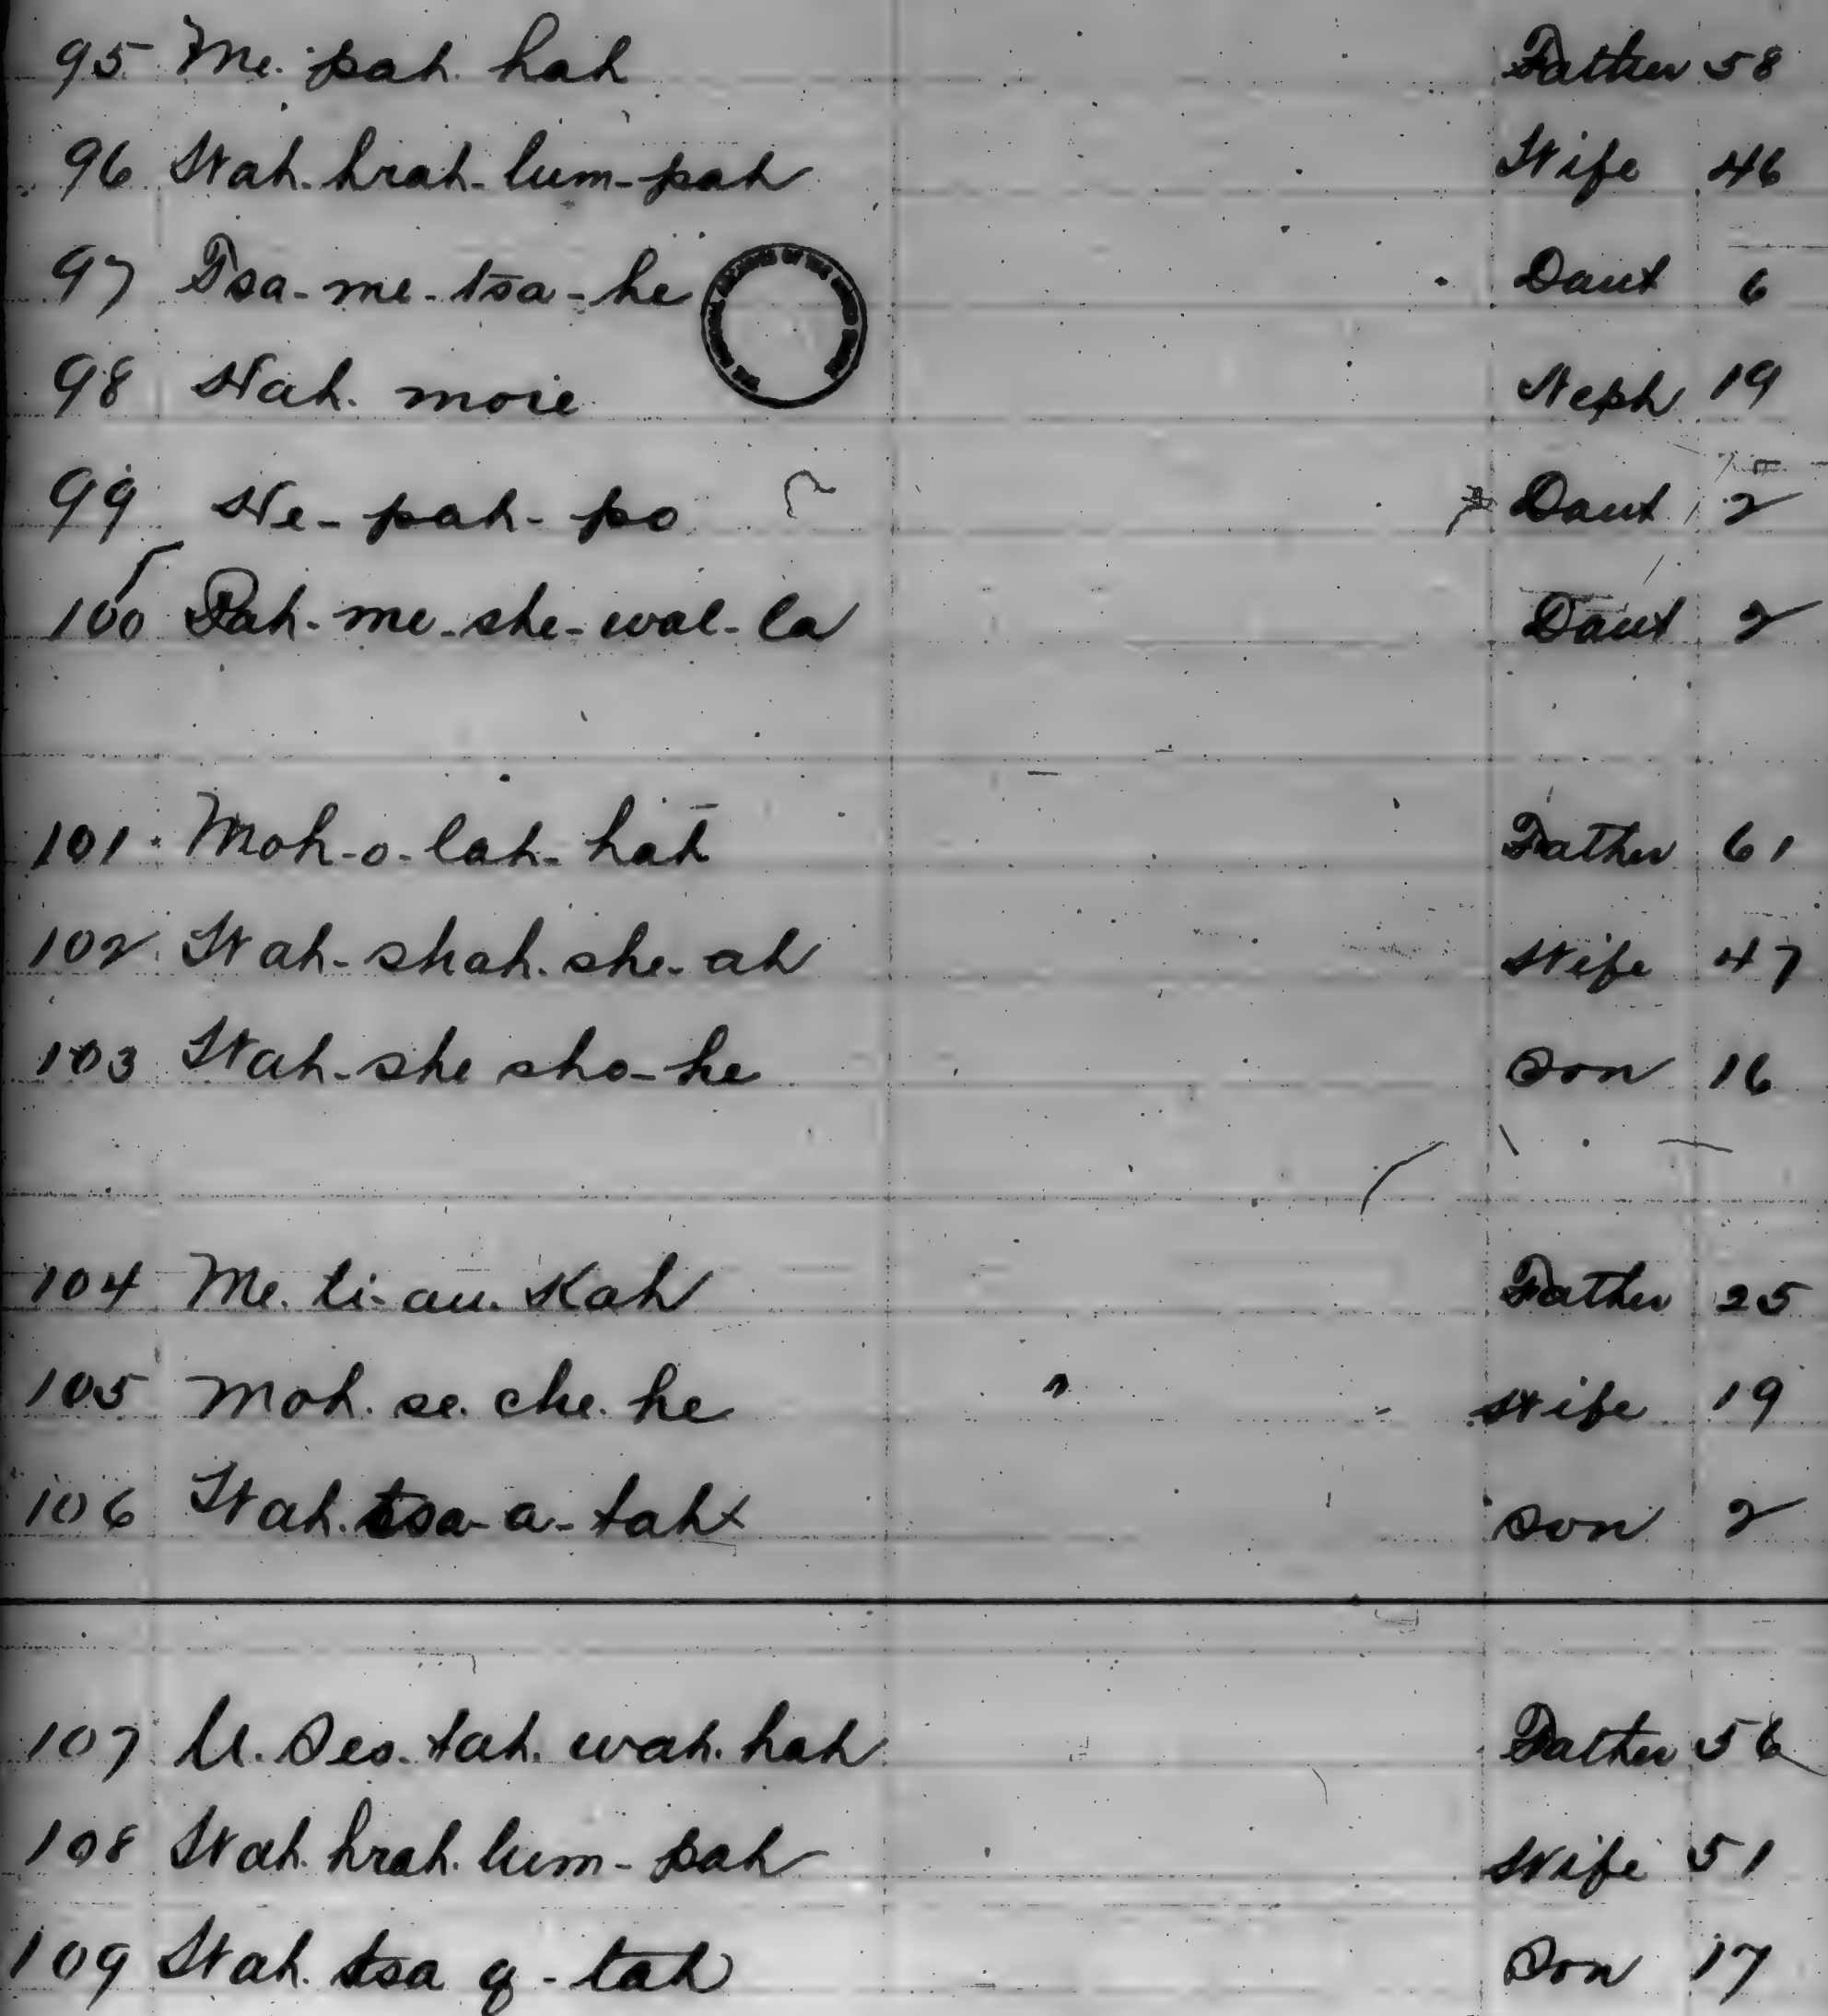 95 Me. pah. hah Father 58
96 Wah. hrah-lum-pah Wife 46
97 Tsa-me-tsa-he Daut 6
98 Nah. moie Neph 19
99 Ne-pah-po Daut 2
100 Pah-me-she-wal-la Daut 2
101 Moh-o-lah-hah Father 61
102 Wah-shah-she-ah Wife 47
103 Wah-she sho-he Son 16
104 Me. ti-au. Kah Father 25
105 Moh. se. che. he " Wife 19
106 Wah. tsa-a-tah Son 2
107 U. Ses. tah. wah. hah Father 56
108 Wah. hrah. lum-pah Wife 51
109 Wah. tsa a-tah Son 17